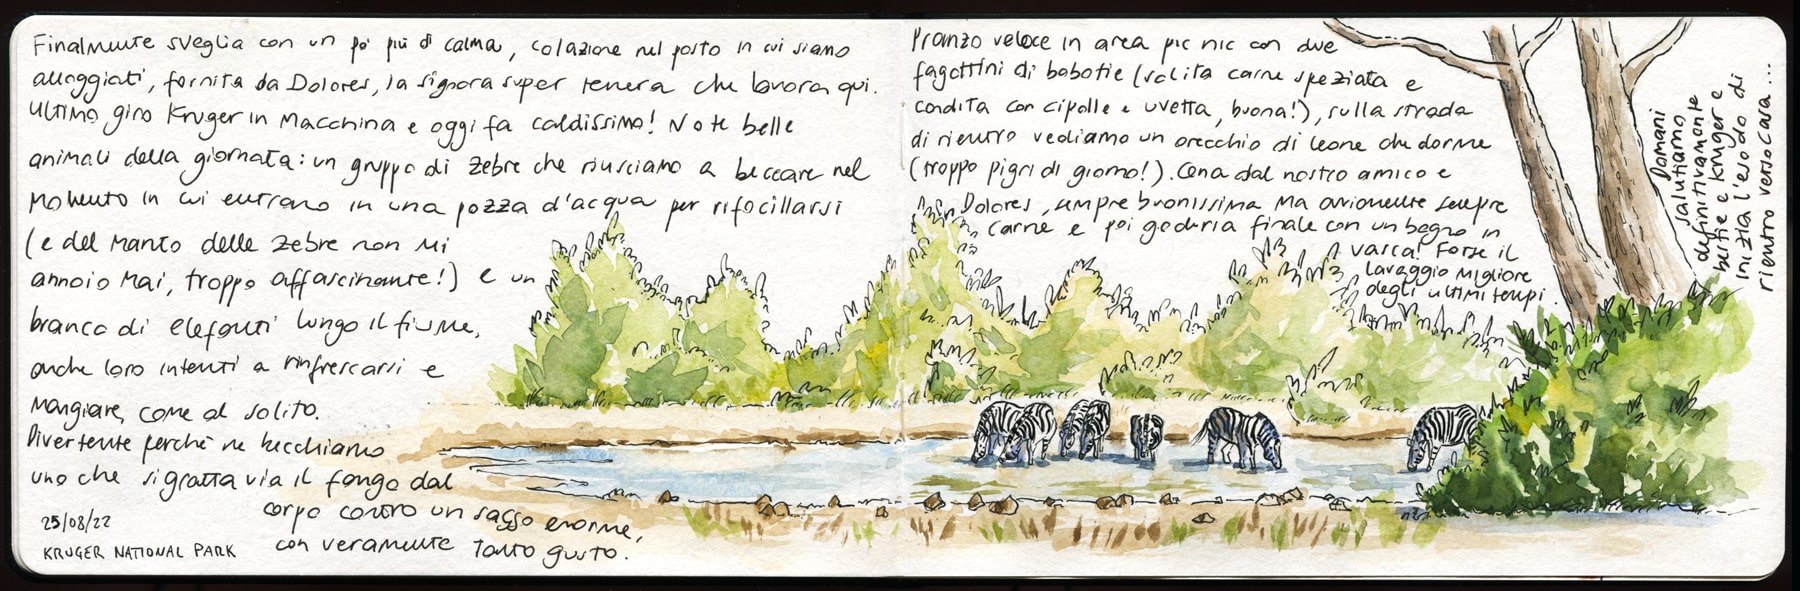 Finalmente sveglia con un po' più di calma, colazione nel posto in cui siamo
alloggiati, fornita da Dolores, la signora super tenera che lavora qui.
Ultimo giro Kruger in macchina e oggi fa caldissimo! Note belle
animali della giornata: un gruppo di zebre che riusciamo a beccare nel
momento in cui entrano in una pozza d'acqua per rifocillarsi
(e del manto delle zebre non mi
annoio mai, troppo affascinante!) e un
branco di elefanti lungo il fiume,
anche loro intenti a rinfrescarsi e
mangiare, come al solito.
Divertente perché ne becchiamo
uno che si gratta via il fango dal
corpo contro un sasso enorme,
con veramente tanto gusto.
25/08/22
KRUGER NATIONAL PARK
Pranzo veloce in area pic nic con due
fagottini di bobotie (solita carne speziata e
condita con cipolle e uvetta, buona!), sulla strada
di rientro vediamo un orecchio di leone che dorme
(troppo pigri di giorno!). Cena dal nostro amico e
Dolores, sempre buonissima ma ovviamente sempre
carne e poi goduria finale con un bagno in
vasca! Forse il
lavaggio migliore
degli ultimi tempi.
Domani
salutiamo
definitivamente
bestie e Kruger e
inizia l'esodo di
rientro verso casa...